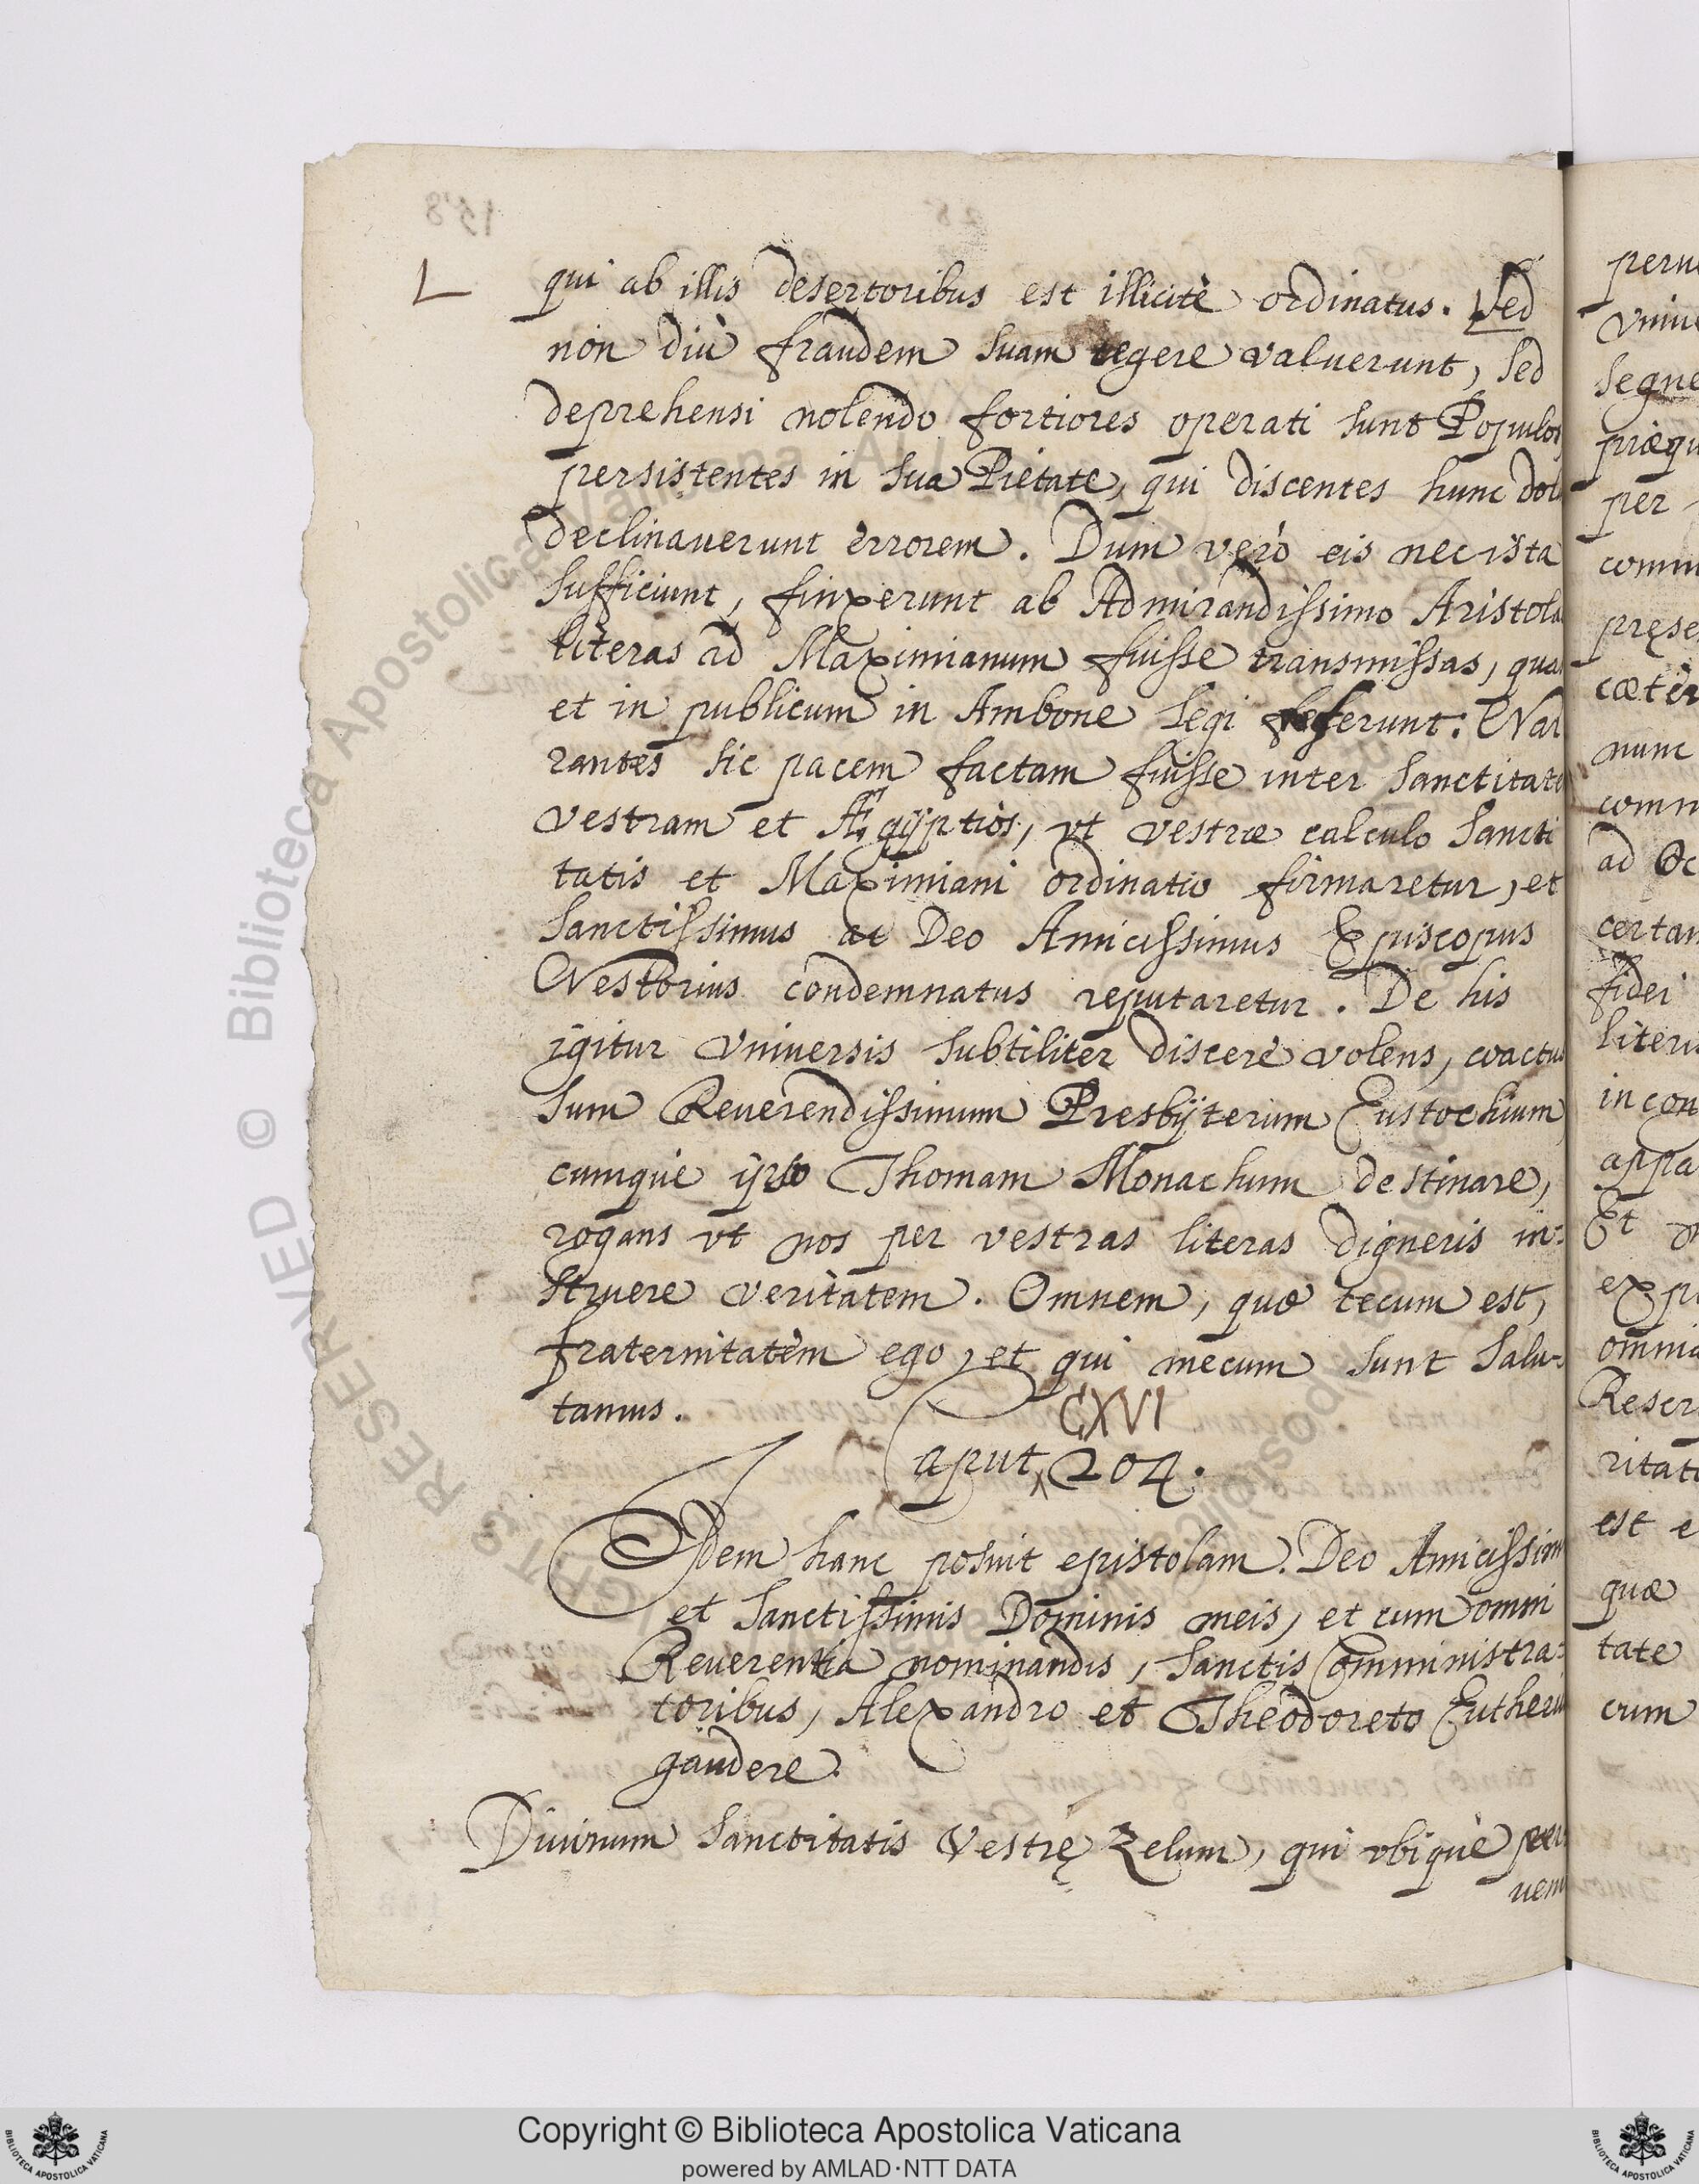 L
qui ab illis desertoribus est illicitè ordinatus. Sed
non diù fraudem suam tegere valuerunt, sed
deprehensi nolendo fortiores operati sunt Populos
persistentes in sua Pietate, qui discentes hunc dol
declinauerunt errorem. Dum verò eis nec ista
sufficiunt, finxerunt ab Admirandissimo Aristola
literas ad Maximianum fuisse transmissas, quas
et in publicum in Ambone legi fecerunt: Nar
rantes sic pacem factam fuisse inter sanctitate
vestram et Ægÿptios, vt vestræ calculo Sancti
tatis et Maximiani ordinatio firmaretur, et
Sanctissimus ac Deo Amicissimus Episcopus
Nestorius condemnatus reputaretur. De his
igitur vniuersis subtiliter discere volens, coactus
sum Reuerendissimum Presbÿterium Eustochium
cumque ipso Thomam Monachum destinare,
rogans vt nos per vestras literas digneris in:
struere veritatem. Omnem, quæ tecum est,
fraternitatem ego, et qui mecum sunt salu-
tamus.
CXVI
Caput 204.
Idem hanc posuit epistolam. Deo Amicissim
et Sanctissimis Dominis meis, et cum omni
Reuerentia nominandis, Sanctis Comministra:
toribus, Alexandro et Theodoreto Eutheriu
gaudere.
Diuinum Sanctitatis Vestrę Zelum, qui vbique per
uen
peru
vniu
segne
præqu
per
comm
pręse
cæter
nunc
comm
ad Oc
certam
fidei
literis
in con
appa
Et
exp
omnia
Rescr
ritat
est e
quæ
tate
cum
© Biblioteca Apostolica Vaticana
RESERVED
Copyright © Biblioteca Apostolica Vaticana
powered by AMLAD·NTT DATA
BIBLIOTECA APOSTOLICA VATICANA
BIBLIOTECA APOSTOLICA VATICANA